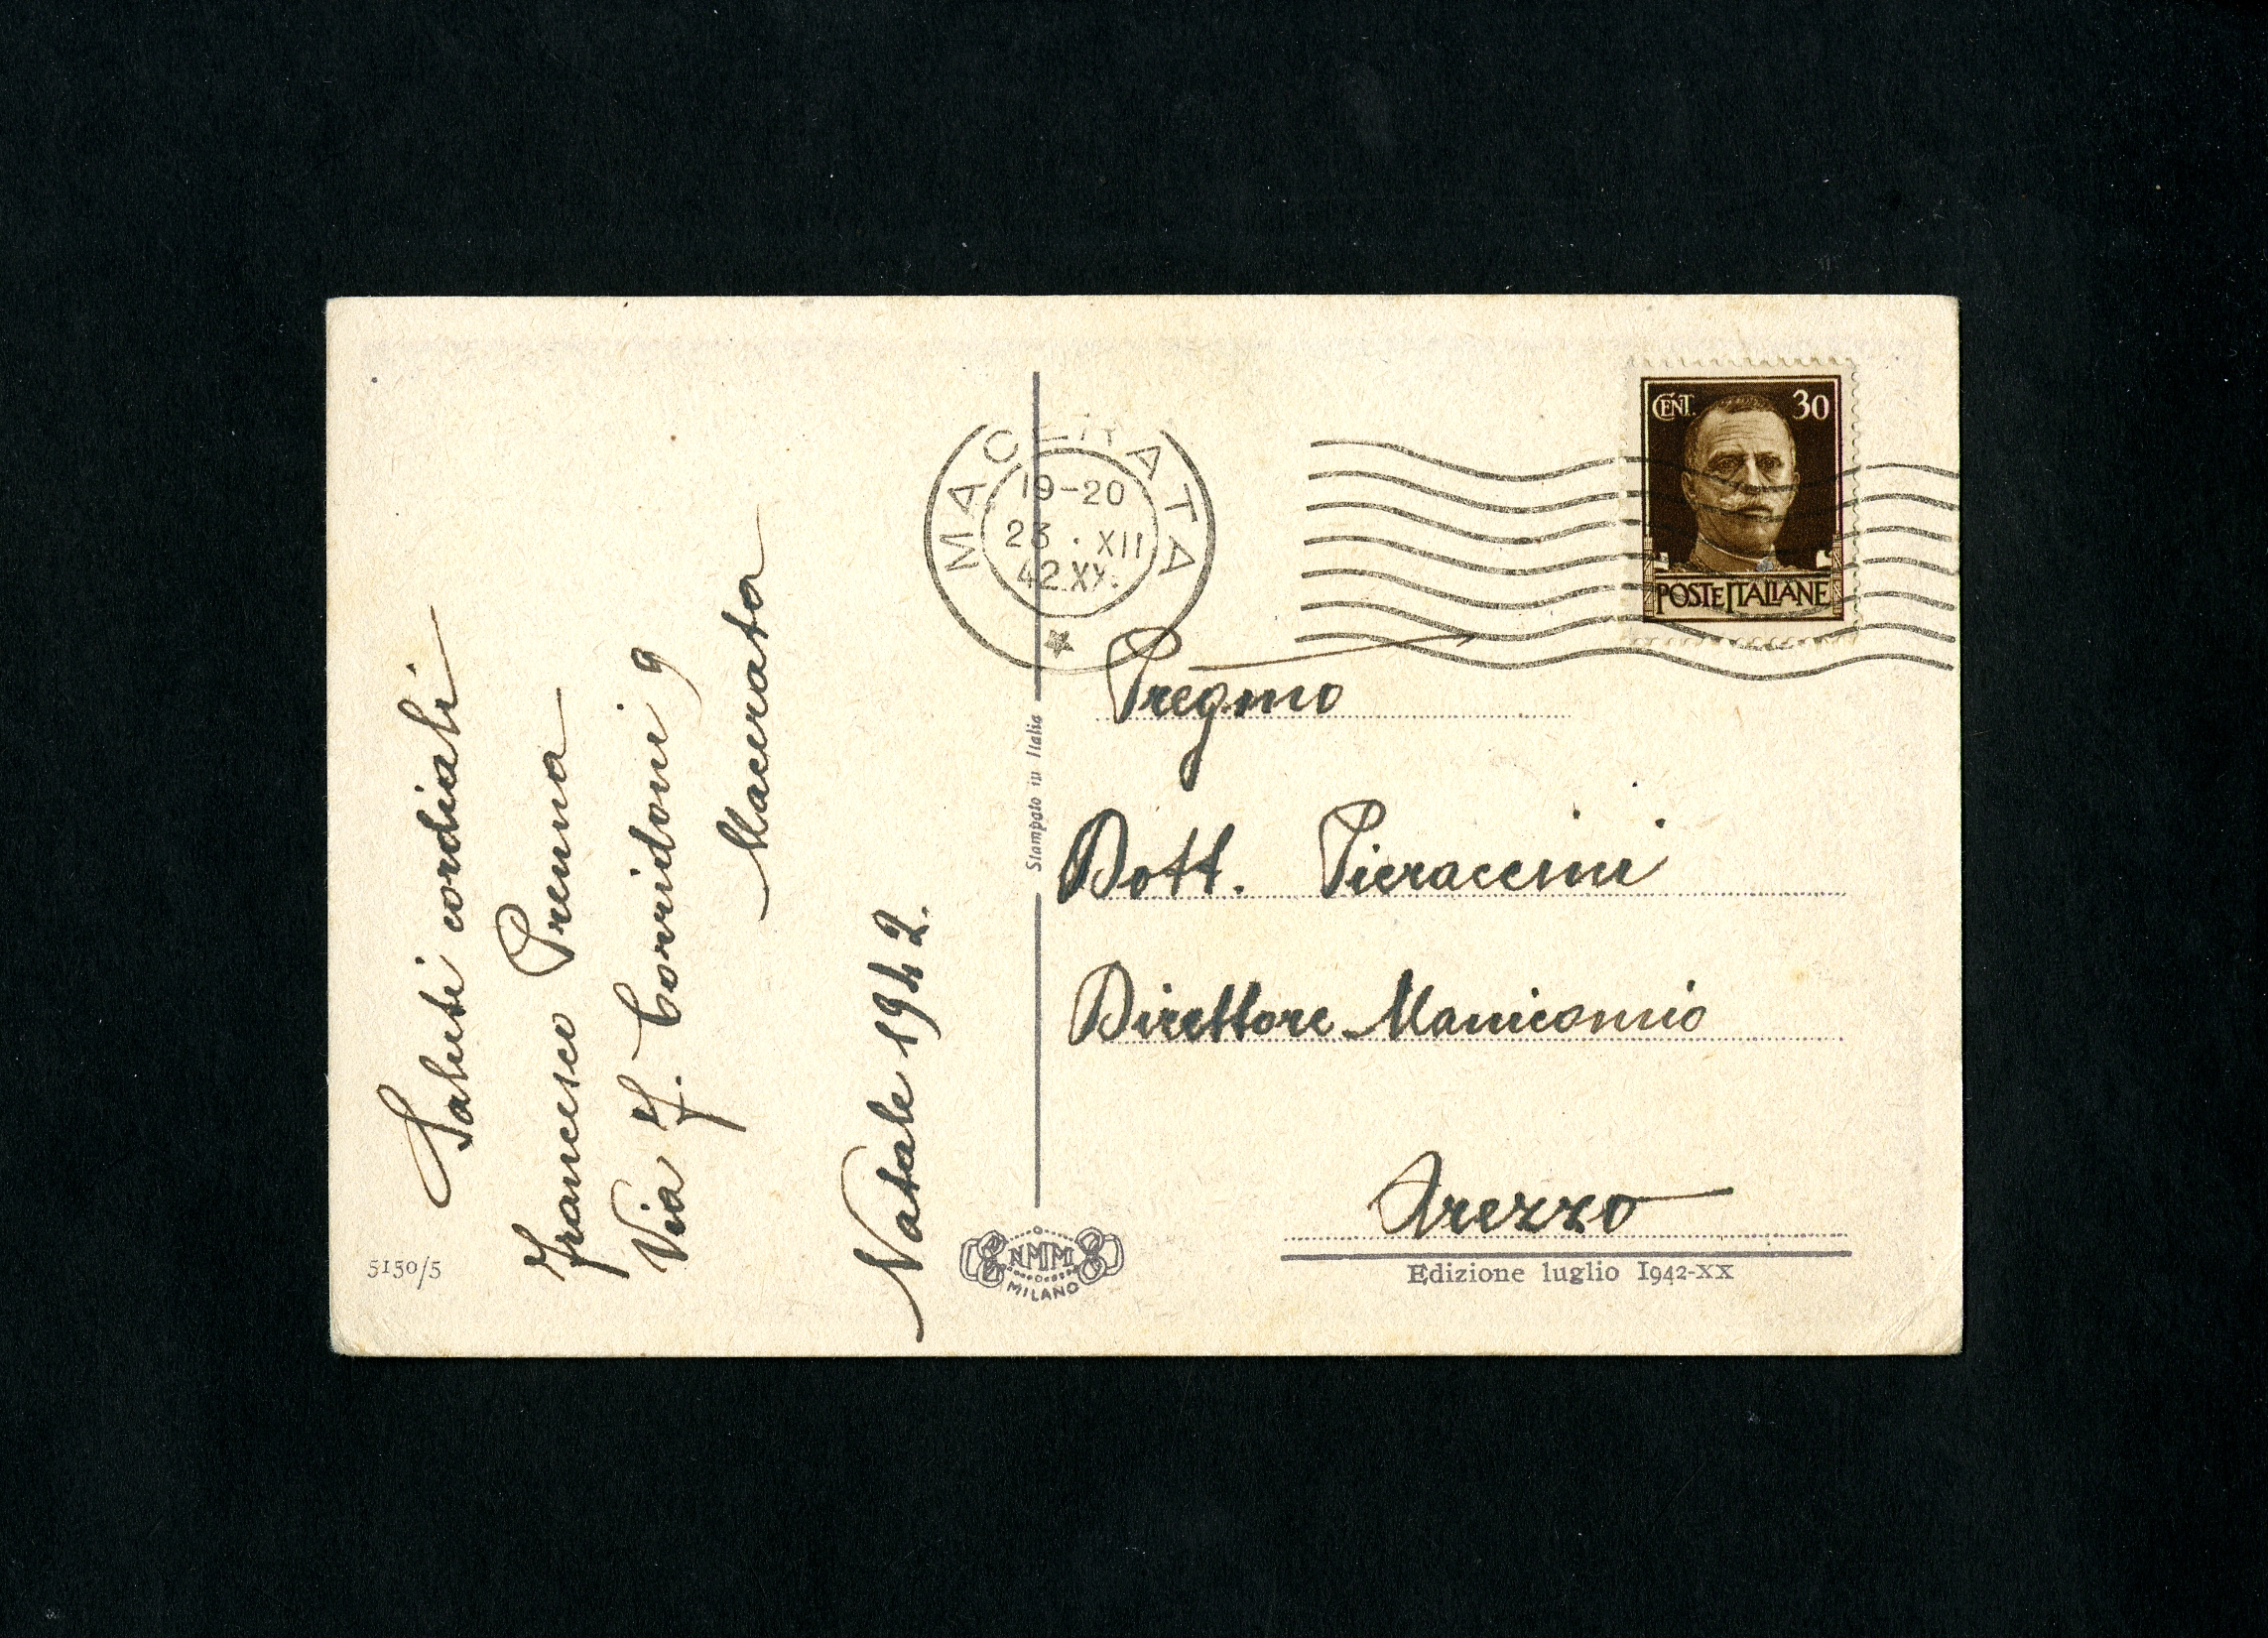 Saluti cordiali
Francesco Prenna
Via F. Corridoni 9
Macerata
Natale 1942.
5150/5
MACERATA
19-20
23 . XII
42.XX.
Stampato in Italia
NMM
MILANO
CENT. 30
POSTE ITALIANE
Pregmo
Dott. Pieraccini
Direttore Manicomio
Arezzo
Edizione luglio 1942-XX